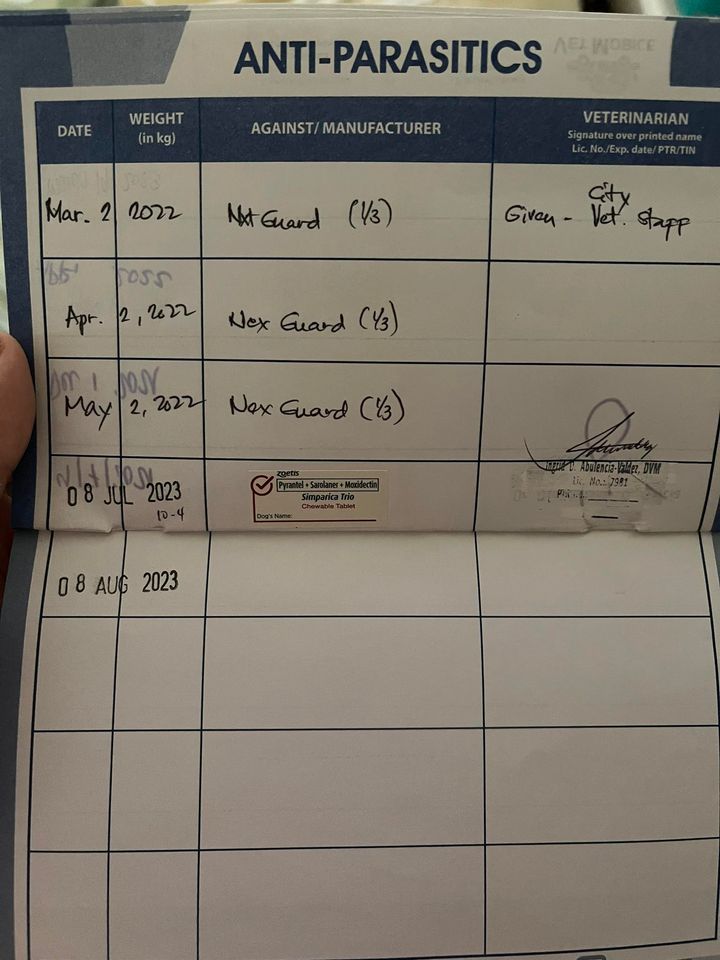 ANTI-PARASITICS
DATE
WEIGHT
(in kg)
AGAINST/ MANUFACTURER
VETERINARIAN
Signature over printed name
Lic. No./Exp. date/ PTR/TIN
Mar. 2 2022
Nxt Guard (1/3)
Given - City Vet. Stapp
Apr. 2, 2022
Nex Guard (1/3)
May 2, 2022
Nex Guard (1/3)
08 JUL 2023
10-4
zoetis
Pyrantel + Sarolaner + Moxidectin
Simparica Trio
Chewable Tablet
Dog's Name:
Ingrid D. Abulencia-Valdez, DVM
Lic. No.: 7981
08 AUG 2023